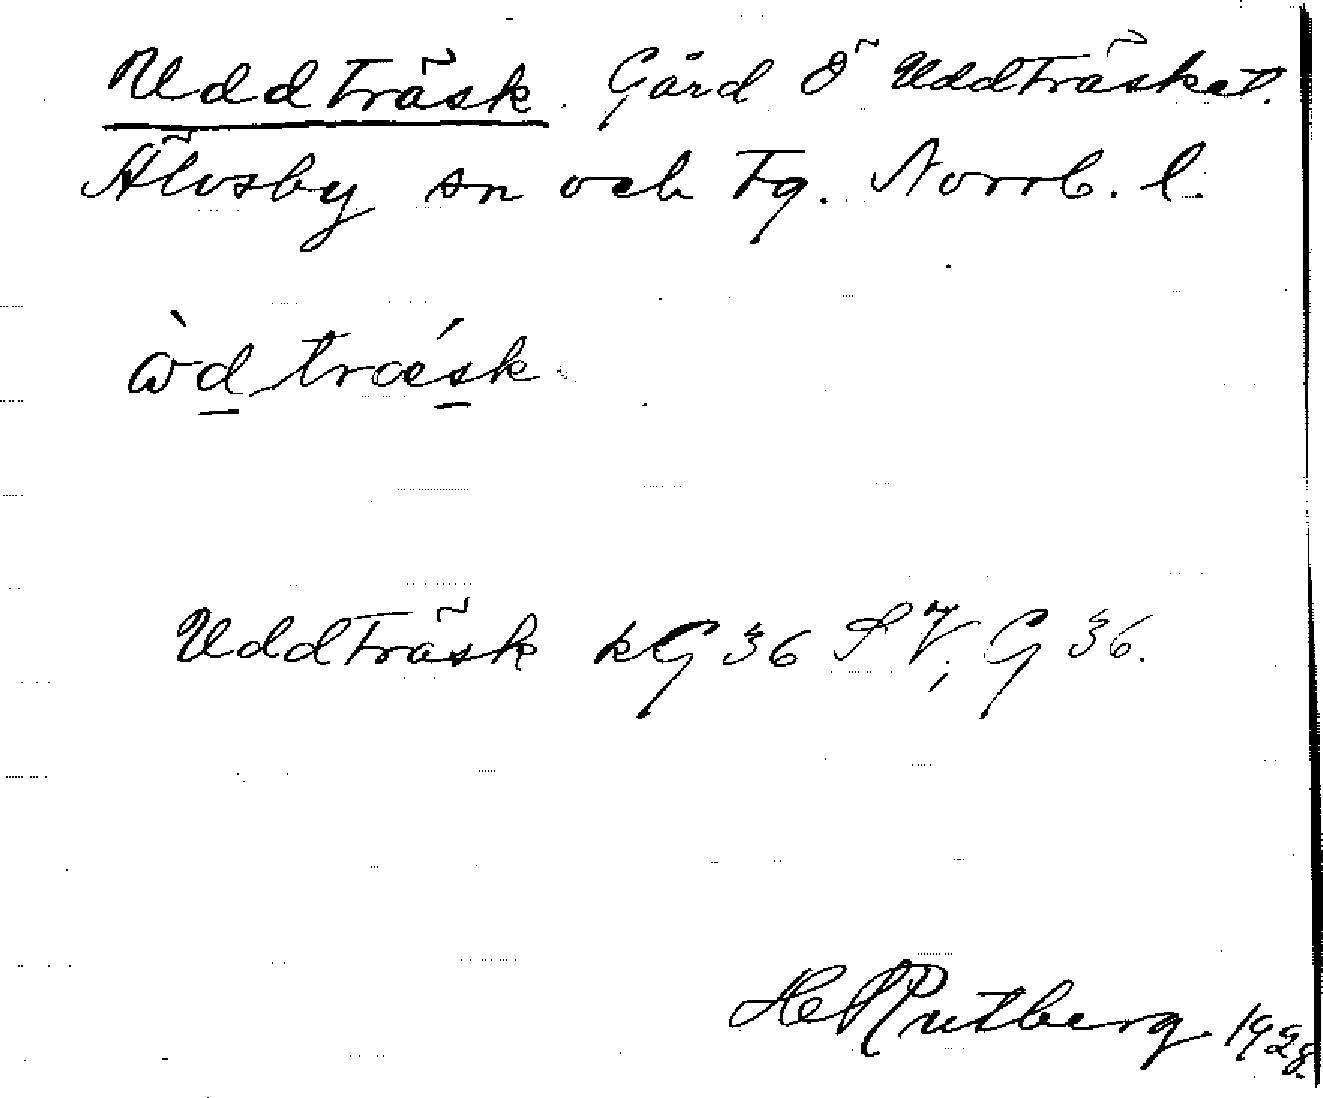 Uddträsk. Gård Ö Uddträsket.
Älvsby sn och tg. Norrb. l.
Uddträsk kG 36 SV, G 36.
H Rutberg. 1928.